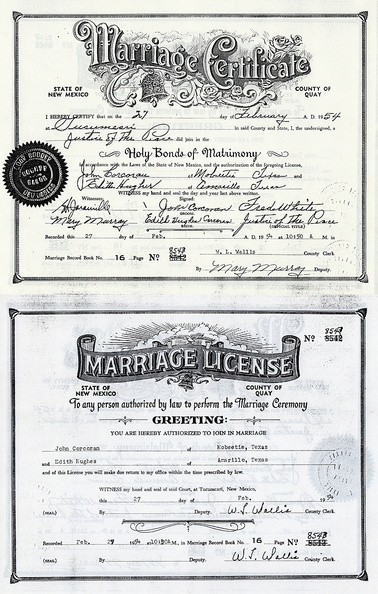 Marriage Certificate
STATE OF NEW MEXICO
COUNTY OF QUAY
I HEREBY CERTIFY that on the 27 day of February A. D. 1954
at Tucumcari in said County and State, I, the undersigned, a
Justice of the Peace did join in the
Holy Bonds of Matrimony
in accordance with the Laws of the State of New Mexico, and the authorization of the foregoing License,
John Corcoran of Mobeetie Texas and
Edith Hughes of Amarillo Texas
WITNESS my hand and seal the day and year last above written.
Witnesses: Signed:
John Corcoran Fred White
GROOM
Mary Murray Edith Hughes Justice of the Peace
BRIDE (OFFICIAL TITLE)
Recorded this 27 day of Feb. A. D. 1954 at 10:50 A M. in
Marriage Record Book No. 16 Page Nº 8543 8542 W. L. Wallis County Clerk.
By Mary Murray Deputy.
Nº 8543 8542
MARRIAGE LICENSE
STATE OF NEW MEXICO
COUNTY OF QUAY
To any person authorized by law to perform the Marriage Ceremony
GREETING:
YOU ARE HEREBY AUTHORIZED TO JOIN IN MARRIAGE
John Corcoran of Mobeetie, Texas
and Edith Hughes of Amarillo, Texas
and of this License you will make due return to my office within the time prescribed by law.
WITNESS my hand and seal of said Court, at Tucumcari, New Mexico,
this 27 day of Feb. 1954
(SEAL) By Deputy. W. L. Wallis County Clerk.
Recorded Feb. 27 1954 at 10:50A M., in Marriage Record Book No. 16 Page Nº 8543
(SEAL) By Deputy. W. L. Wallis County Clerk.